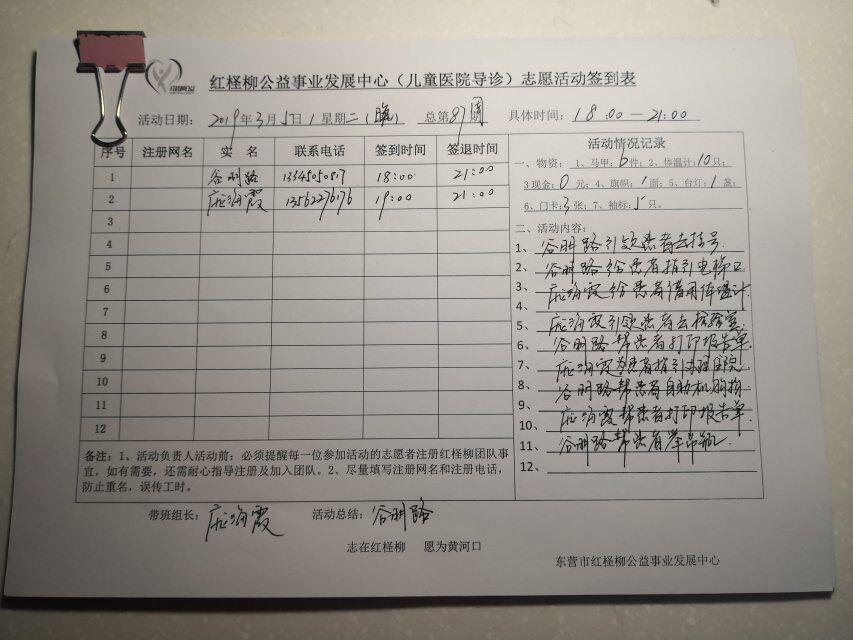 红柽柳公益事业发展中心（儿童医院导诊）志愿活动签到表
活动日期：2019年3月5日/星期二（晚） 总第87周 具体时间：18:00—21:00
序号 注册网名 实 名 联系电话 签到时间 签退时间
1 谷明路 13345050817 18:00 21:00
2 庞海霞 13562276176 19:00 21:00
3
4
5
6
7
8
9
10
11
12
备注：1、活动负责人活动前：必须提醒每一位参加活动的志愿者注册红柽柳团队事
宜，如有需要，还需耐心指导注册及加入团队。2、尽量填写注册网名和注册电话，
防止重名，误传工时。
活动情况记录
一、物资：1、马甲：6件；2、体温计：10只；
3现金：0元；4、旗帜：1面；5、台灯：1盏；
6、门卡：3张；7、袖标：5只。
二、活动内容：
1、谷明路引领患者去挂号.
2、谷明路给患者指引电梯口
3、庞海霞给患者借用体温计.
4、
5、庞海霞引领患者去检验室.
6、谷明路帮患者打印报告单.
7、庞海霞为患者指引办理出院
8、谷明路帮患者自助机
9、庞海霞帮患者打印报告单.
10、
11、谷明路帮患者举吊瓶.
12、
带班组长：庞海霞 活动总结：谷明路
志在红柽柳 愿为黄河口
东营市红柽柳公益事业发展中心